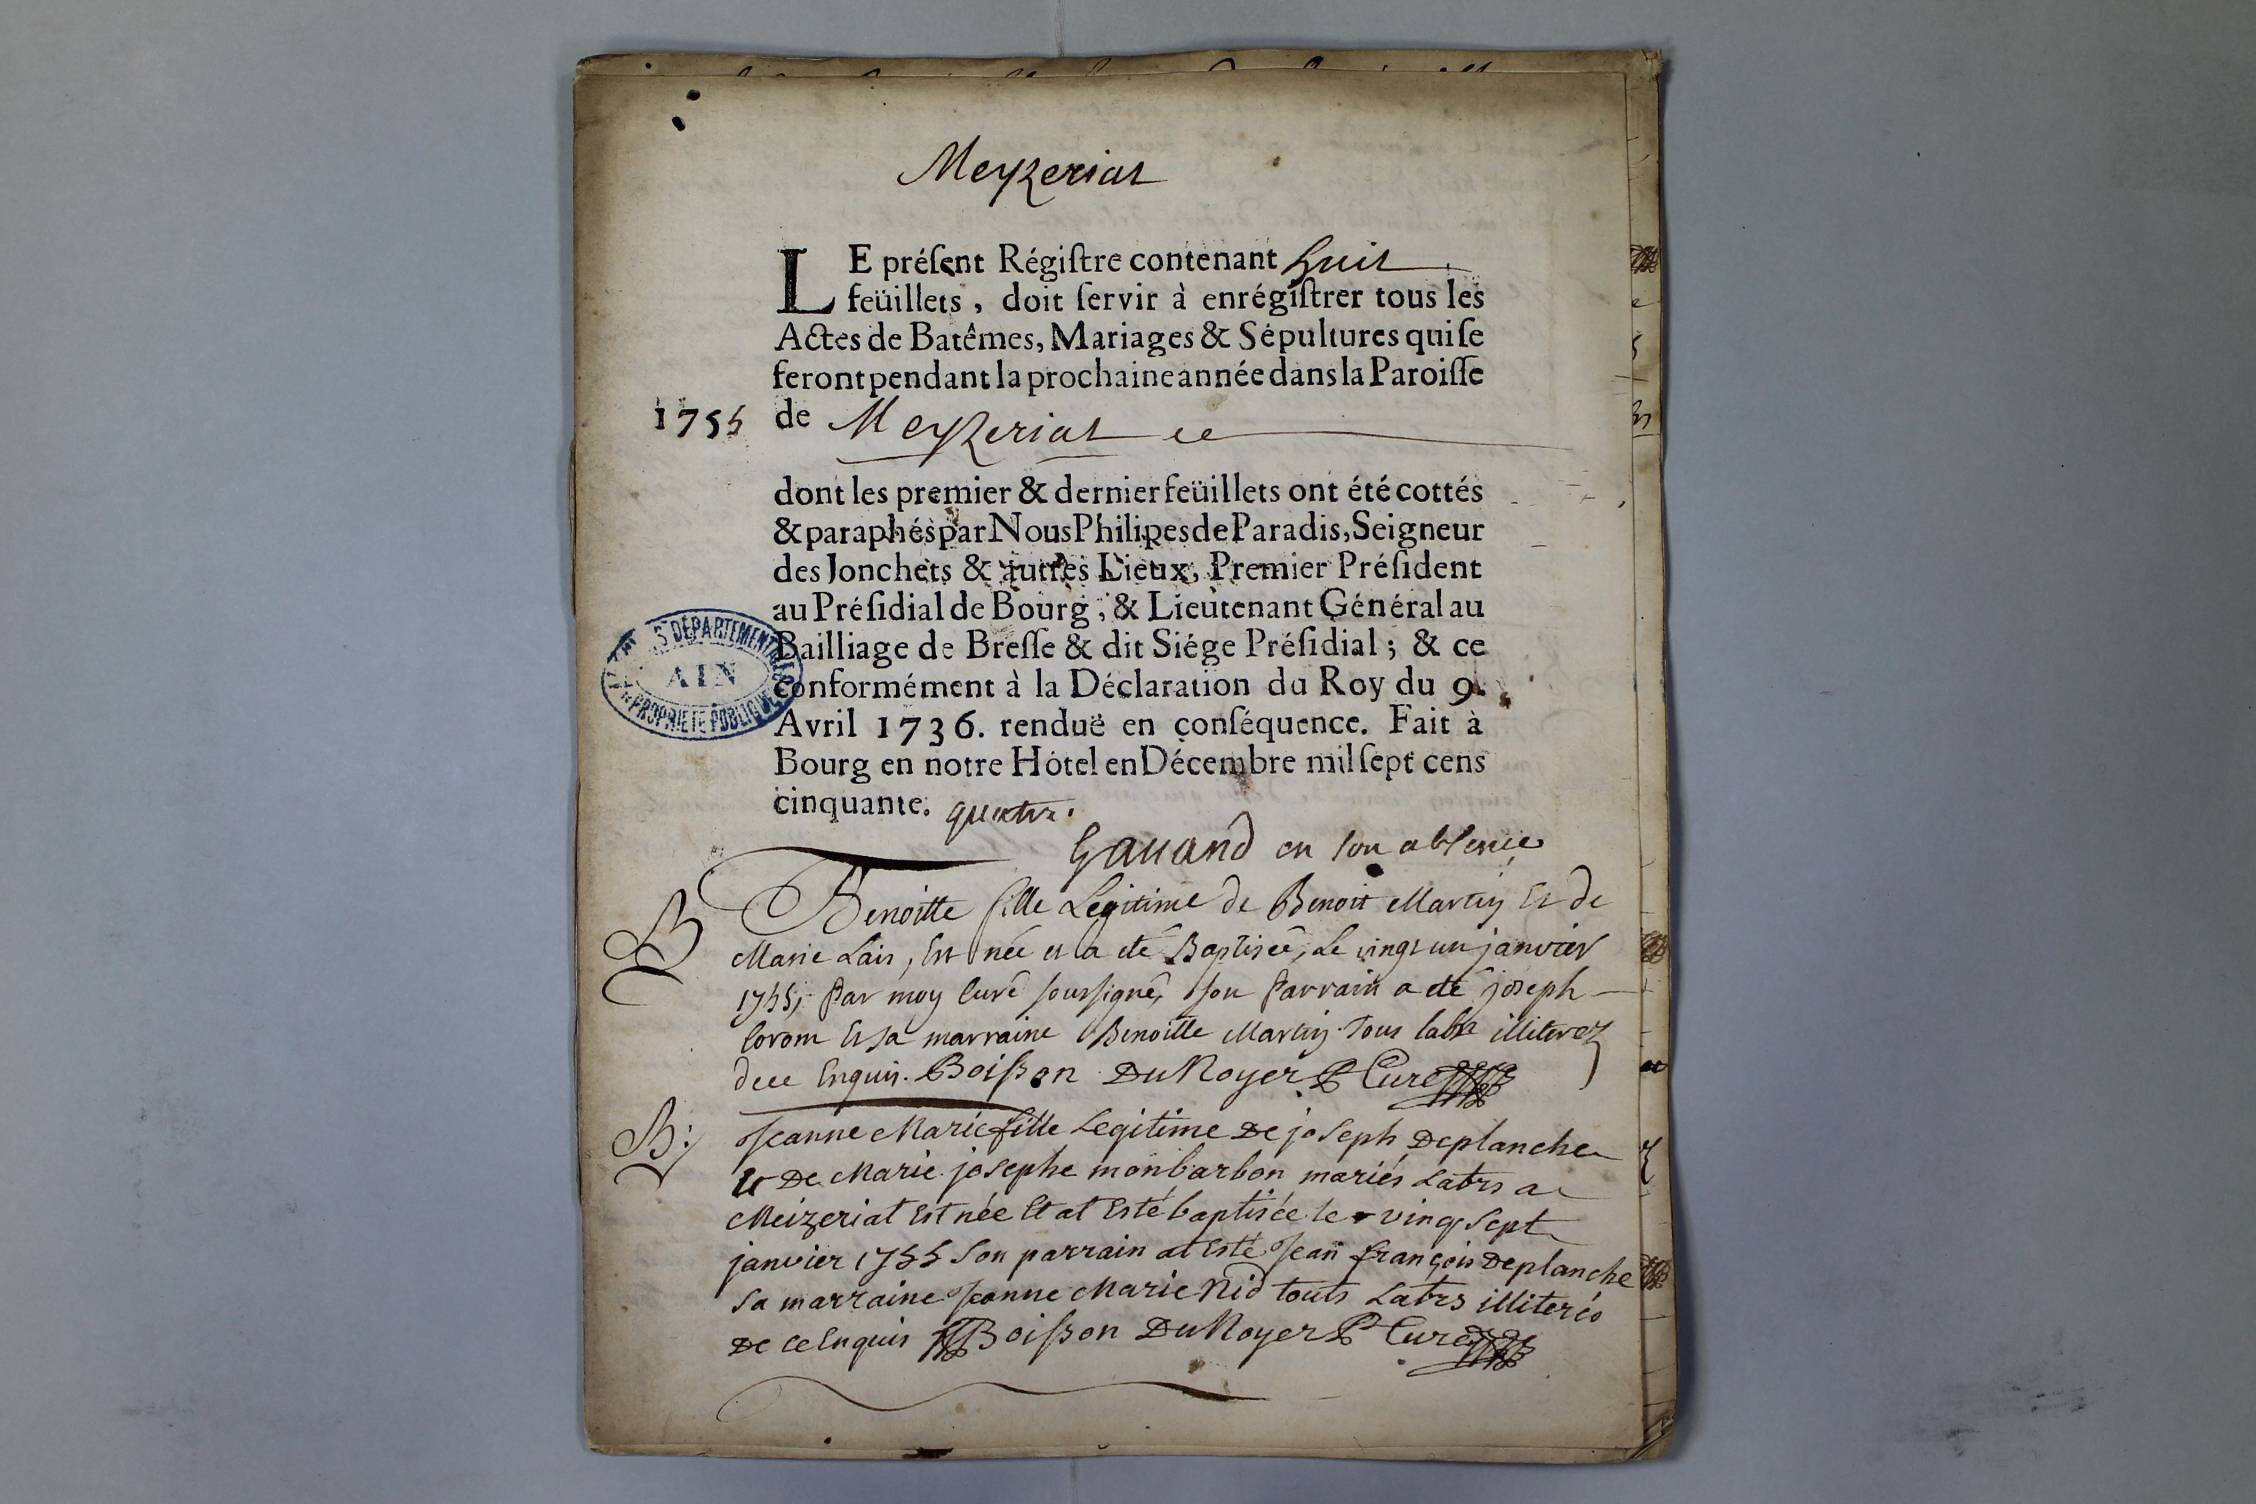 Meyzeriat
LE préſent Régiſtre contenant huit
feüillets, doit ſervir à enrégiſtrer tous les
Actes de Batêmes, Mariages & Sépultures qui ſe
feront pendant la prochaine année dans la Paroiſſe
1755 de Meyzeriat ce
dont les premier & dernier feüillets ont été cottés
& paraphés par Nous Philipes de Paradis, Seigneur
des Jonchets & autres Lieux, Premier Préſident
au Préſidial de Bourg, & Lieutenant Général au
Bailliage de Breſſe & dit Siége Préſidial ; & ce
conformément à la Déclaration du Roy du 9.
Avril 1736. renduë en conſéquence. Fait à
Bourg en notre Hôtel en Décembre mil ſept cens
cinquante. quatre.
DEPARTEMENTALES
AIN
PROPRIETE PUBLIQUE
Gauand en son absence
B Benoitte fille Legitime de Benoit Martin Et de
Marie Lair, Est née et a eté Baptiseé, Le vingt un janvier
1755, Par moy Curé soussigné, son Parrain a eté joseph
Corom Et sa marraine Benoitte Martin. Tous labrs illiterez
de ce Enquis. Boisson DuNoyer P Curé
B: Jeanne Marie fille Legitime De joseph Deplanche
Et De Marie josephe monbarbon mariés Labrs a
Meizeriat Est née Et at Esté baptisée le vingt sept
janvier 1755 Son parrain at Esté Jean françois Deplanche
Sa marraine Jeanne Marie Nid touts Labrs illiterés
De ce Enquis Boisson DuNoyer P Curé